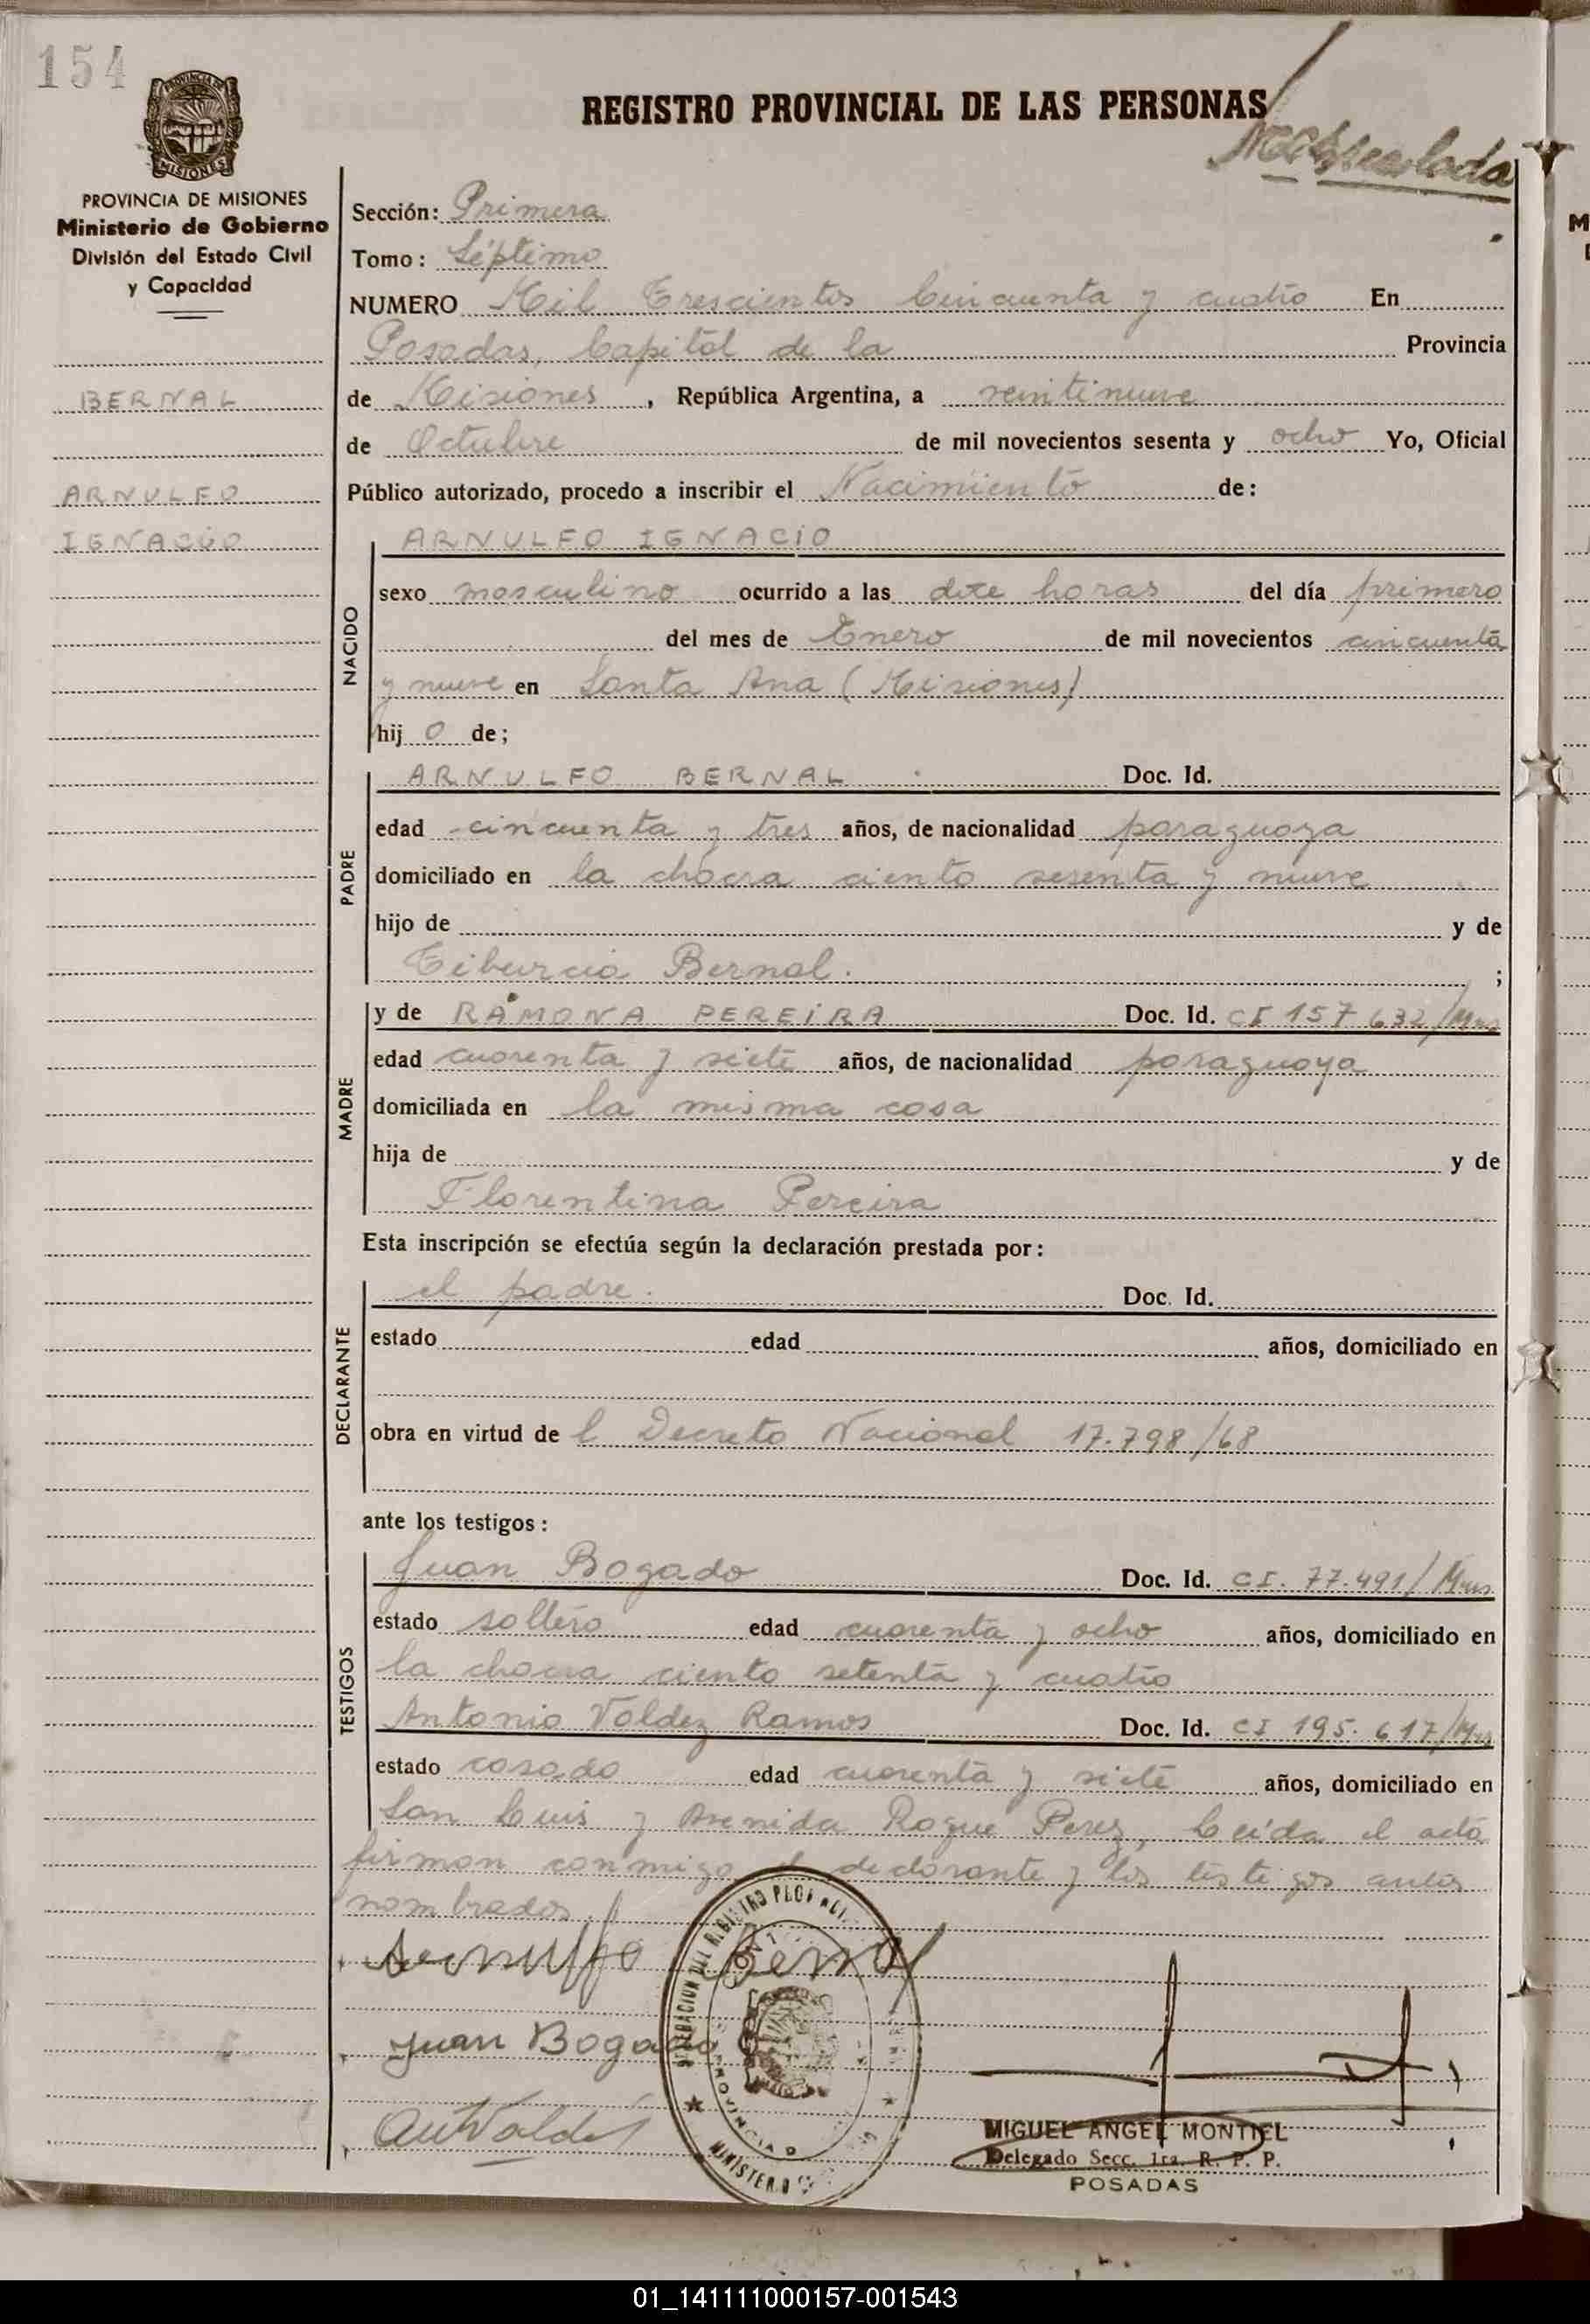 154
PROVINCIA DE MISIONES
Ministerio de Gobierno
División del Estado Civil
y Capacidad
BERNAL
ARNULFO
IGNACIO
REGISTRO PROVINCIAL DE LAS PERSONAS
Sección: Primera
Tomo: Séptimo
NUMERO Mil Trescientos Cincuenta y cuatro En
Posadas, Capital de la Provincia
de Misiones, República Argentina, a veintinueve
de Octubre de mil novecientos sesenta y ocho Yo, Oficial
Público autorizado, procedo a inscribir el Nacimiento de:
NACIDO
ARNULFO IGNACIO
sexo masculino ocurrido a las doce horas del día primero
del mes de Enero de mil novecientos cincuenta
y nueve en Santa Ana (Misiones)
hij o de;
PADRE
ARNULFO BERNAL. Doc. Id.
edad cincuenta y tres años, de nacionalidad paraguaya
domiciliado en la chacra ciento sesenta y nueve
hijo de y de
Tiburcia Bernal. ;
MADRE
y de RAMONA PEREIRA Doc. Id. CI 157 632/Mns
edad cuarenta y siete años, de nacionalidad paraguaya
domiciliada en la misma casa
hija de y de
Florentina Pereira
Esta inscripción se efectúa según la declaración prestada por:
DECLARANTE
el padre. Doc. Id.
estado edad años, domiciliado en
obra en virtud de l Decreto Nacional 17.798/68
ante los testigos:
TESTIGOS
Juan Bogado Doc. Id. CI. 77.491/Mns
estado soltero edad cuarenta y ocho años, domiciliado en
la chacra ciento setenta y cuatro
Antonio Valdez Ramos Doc. Id. CI 195.617/Mns
estado casado edad cuarenta y siete años, domiciliado en
San Luis y Avenida Roque Perez, Leída el acta
firman conmigo el declarante y los testigos antes
nombrados.
Arnulfo Bernal
Juan Bogado
MIGUEL ANGEL MONTIEL
Delegado Secc. 1ra. R. P. P.
POSADAS
01_141111000157-001543